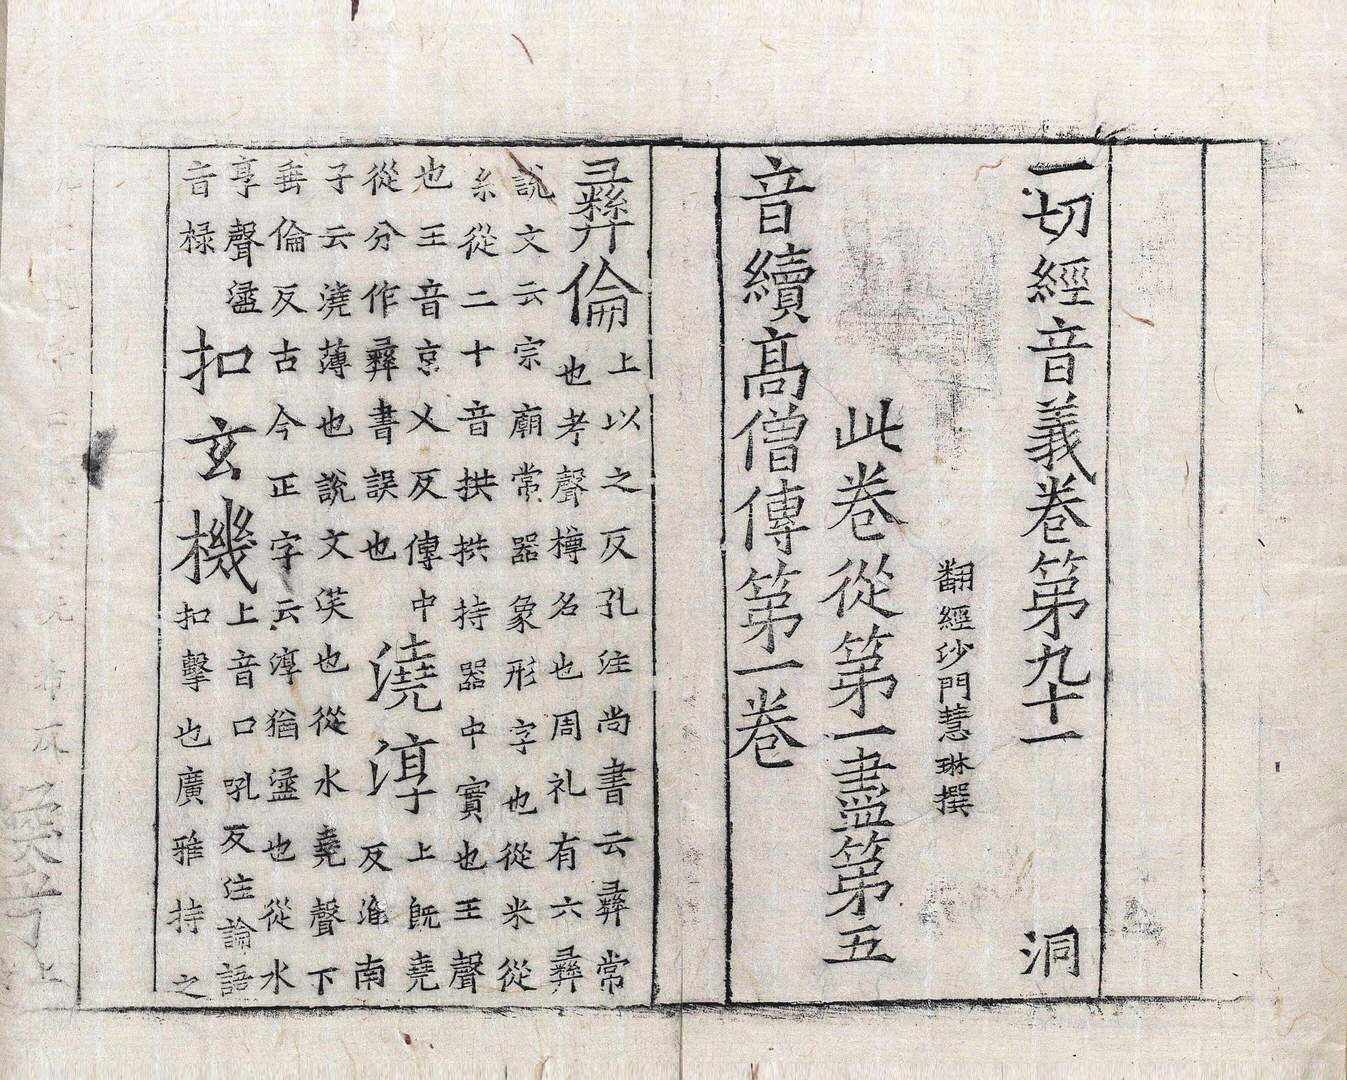 一切經音義卷第九十一 洞
翻經沙門慧琳撰
此卷從第一盡第五
音續高僧傳第一卷
彝倫
上以之反孔注尚書云彝常
也考聲樽名也周礼有六彝
說文云宗廟常器象形字也從米從
糸從二十音拱拱持器中實也王聲
也王音京乂反傳中
從分作彝書誤也
澆淳
上旣堯
反淮南
子云澆薄也說文渶也從水堯聲下
垂倫反古今正字云淳猶盪也從水
享聲盪
音椂
扣玄機
上音口吼反注論語
扣擊也廣雅持之